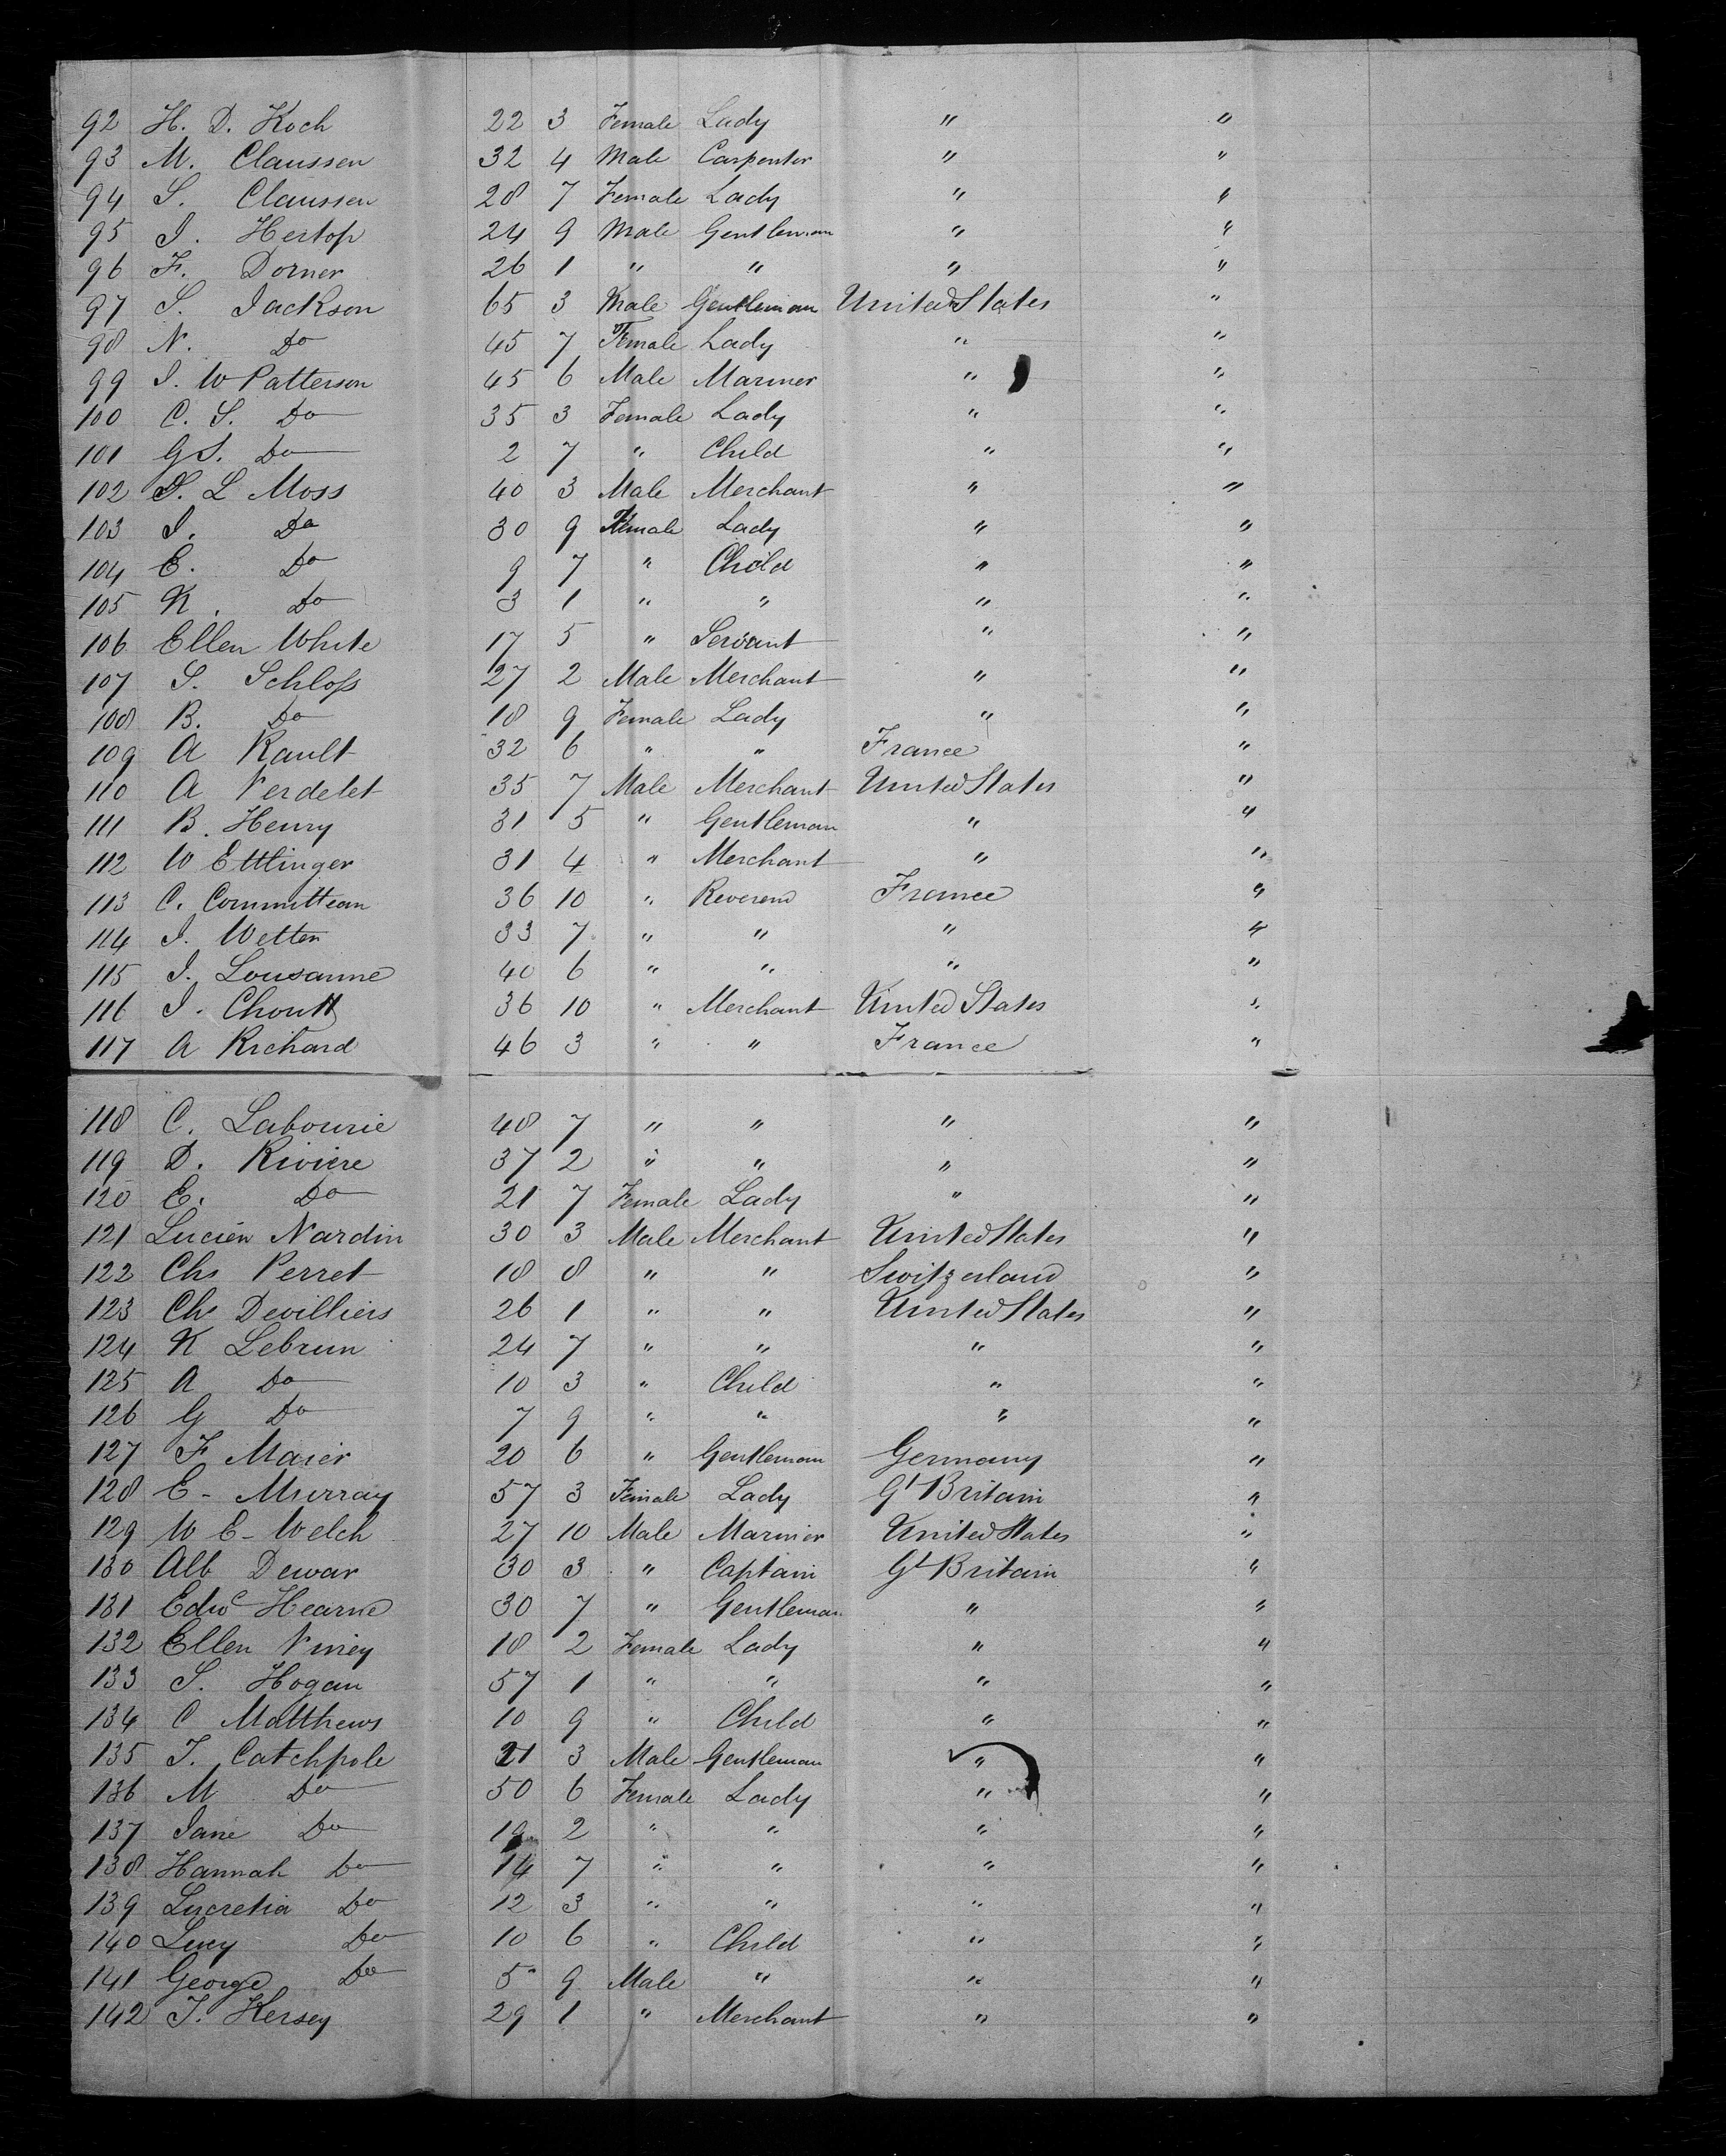 92 H. D. Koch 22 3 Female Lady " "
93 M. Claussen 32 4 Male Carpenter " "
94 S. Claussen 28 7 Female Lady " "
95 I. Hertop 24 9 Male Gentleman " "
96 F. Dorner 26 1 " " " "
97 S. Jackson 65 3 Male Gentleman United States "
98 N. Do 45 7 Female Lady " "
99 I. W Patterson 45 6 Male Mariner " "
100 C. S. Do 35 3 Female Lady " "
101 G S. Do 2 7 " Child " "
102 S. L Moss 40 3 Male Merchant " "
103 I. Do 30 9 Female Lady " "
104 E. Do 9 7 " Child " "
105 K. Do 3 1 " " " "
106 Ellen White 17 5 " Servant " "
107 S. Schloss 27 2 Male Merchant " "
108 B. Do 18 9 Female Lady " "
109 A Rault 32 6 " " France "
110 A Verdelet 35 7 Male Merchant United States "
111 B. Henry 31 5 " Gentleman " "
112 W Ettlinger 31 4 " Merchant " "
113 C. Committean 36 10 " Reverend France "
114 I. Wetten 33 7 " " " "
115 I. Lousanne 40 6 " " " "
116 I. 36 10 " Merchant United States "
117 A Richard 46 3 " " France "
118 C. Labourie 48 7 " " " "
119 D. Riviere 37 2 " " " "
120 E. Do 21 7 Female Lady " "
121 Lucien Nardin 30 3 Male Merchant United States "
122 Chs Perret 18 8 " " Switzerland "
123 Ch Devilliers 26 1 " " United States "
124 K Lebrun 24 7 " " " "
125 A Do 10 3 " Child " "
126 G Do 7 9 " " " "
127 F Maier 20 6 " Gentleman Germany "
128 E - Murray 57 3 Female Lady Gt Britain "
129 W E - Welch 27 10 Male Mariner United States "
130 Alb Dewar 30 3 " Captain Gt Britain "
131 Edwd Hearne 30 7 " Gentleman " "
132 Ellen Viney 18 2 Female Lady " "
133 S. Hogan 57 1 " " " "
134 C Matthews 10 9 " Child " "
135 T. Catchpole 21 3 Male Gentleman " "
136 M Do 50 6 Female Lady " "
137 Jane Do 19 2 " " " "
138 Hannah Do 14 7 " " " "
139 Lucretia Do 12 3 " " " "
140 Lucy Do 10 6 " Child " "
141 George Do 5 9 Male " " "
142 T. Kersey 29 1 " Merchant " "